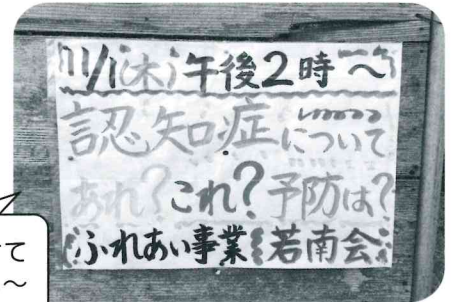 11/1(木)午後2時～
認知症について
あれ?これ?予防は?
ふれあい事業 若南会
て
～